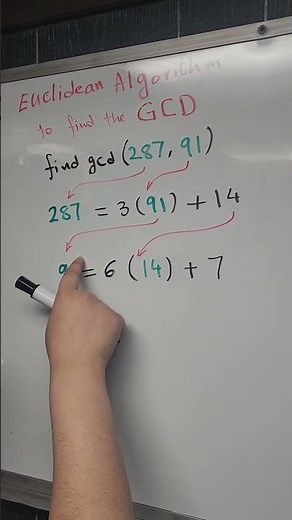 Euclidean Algorithm
to find the GCD
find gcd (287, 91)
287 = 3(91) + 14
= 6 (14) + 7